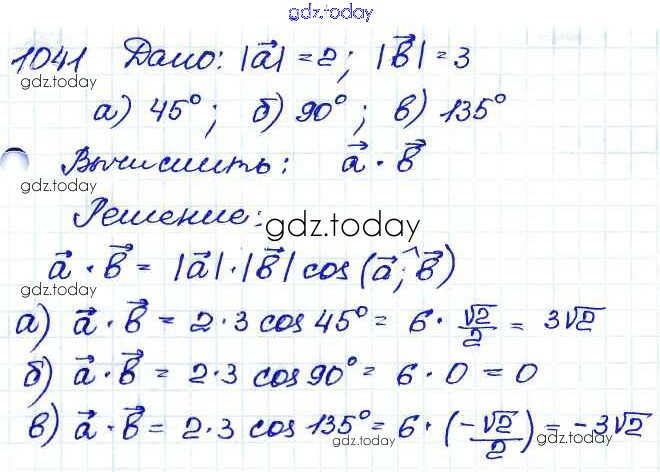 gdz.today
1041 Дано: |a⃗| = 2; |b⃗| = 3
gdz.today
а) 45°; б) 90°; в) 135°
gdz.today
Вычислить: a⃗ · b⃗
gdz.today
Решение:
gdz.today
a⃗ · b⃗ = |a⃗| · |b⃗| cos (a⃗ ;^ b⃗)
gdz.today
а) a⃗ · b⃗ = 2 · 3 cos 45° = 6 · √2/2 = 3√2
gdz.today
gdz.today
б) a⃗ · b⃗ = 2 · 3 cos 90° = 6 · 0 = 0
в) a⃗ · b⃗ = 2 · 3 cos 135° = 6 · (-√2/2) = -3√2
gdz.today
gdz.today